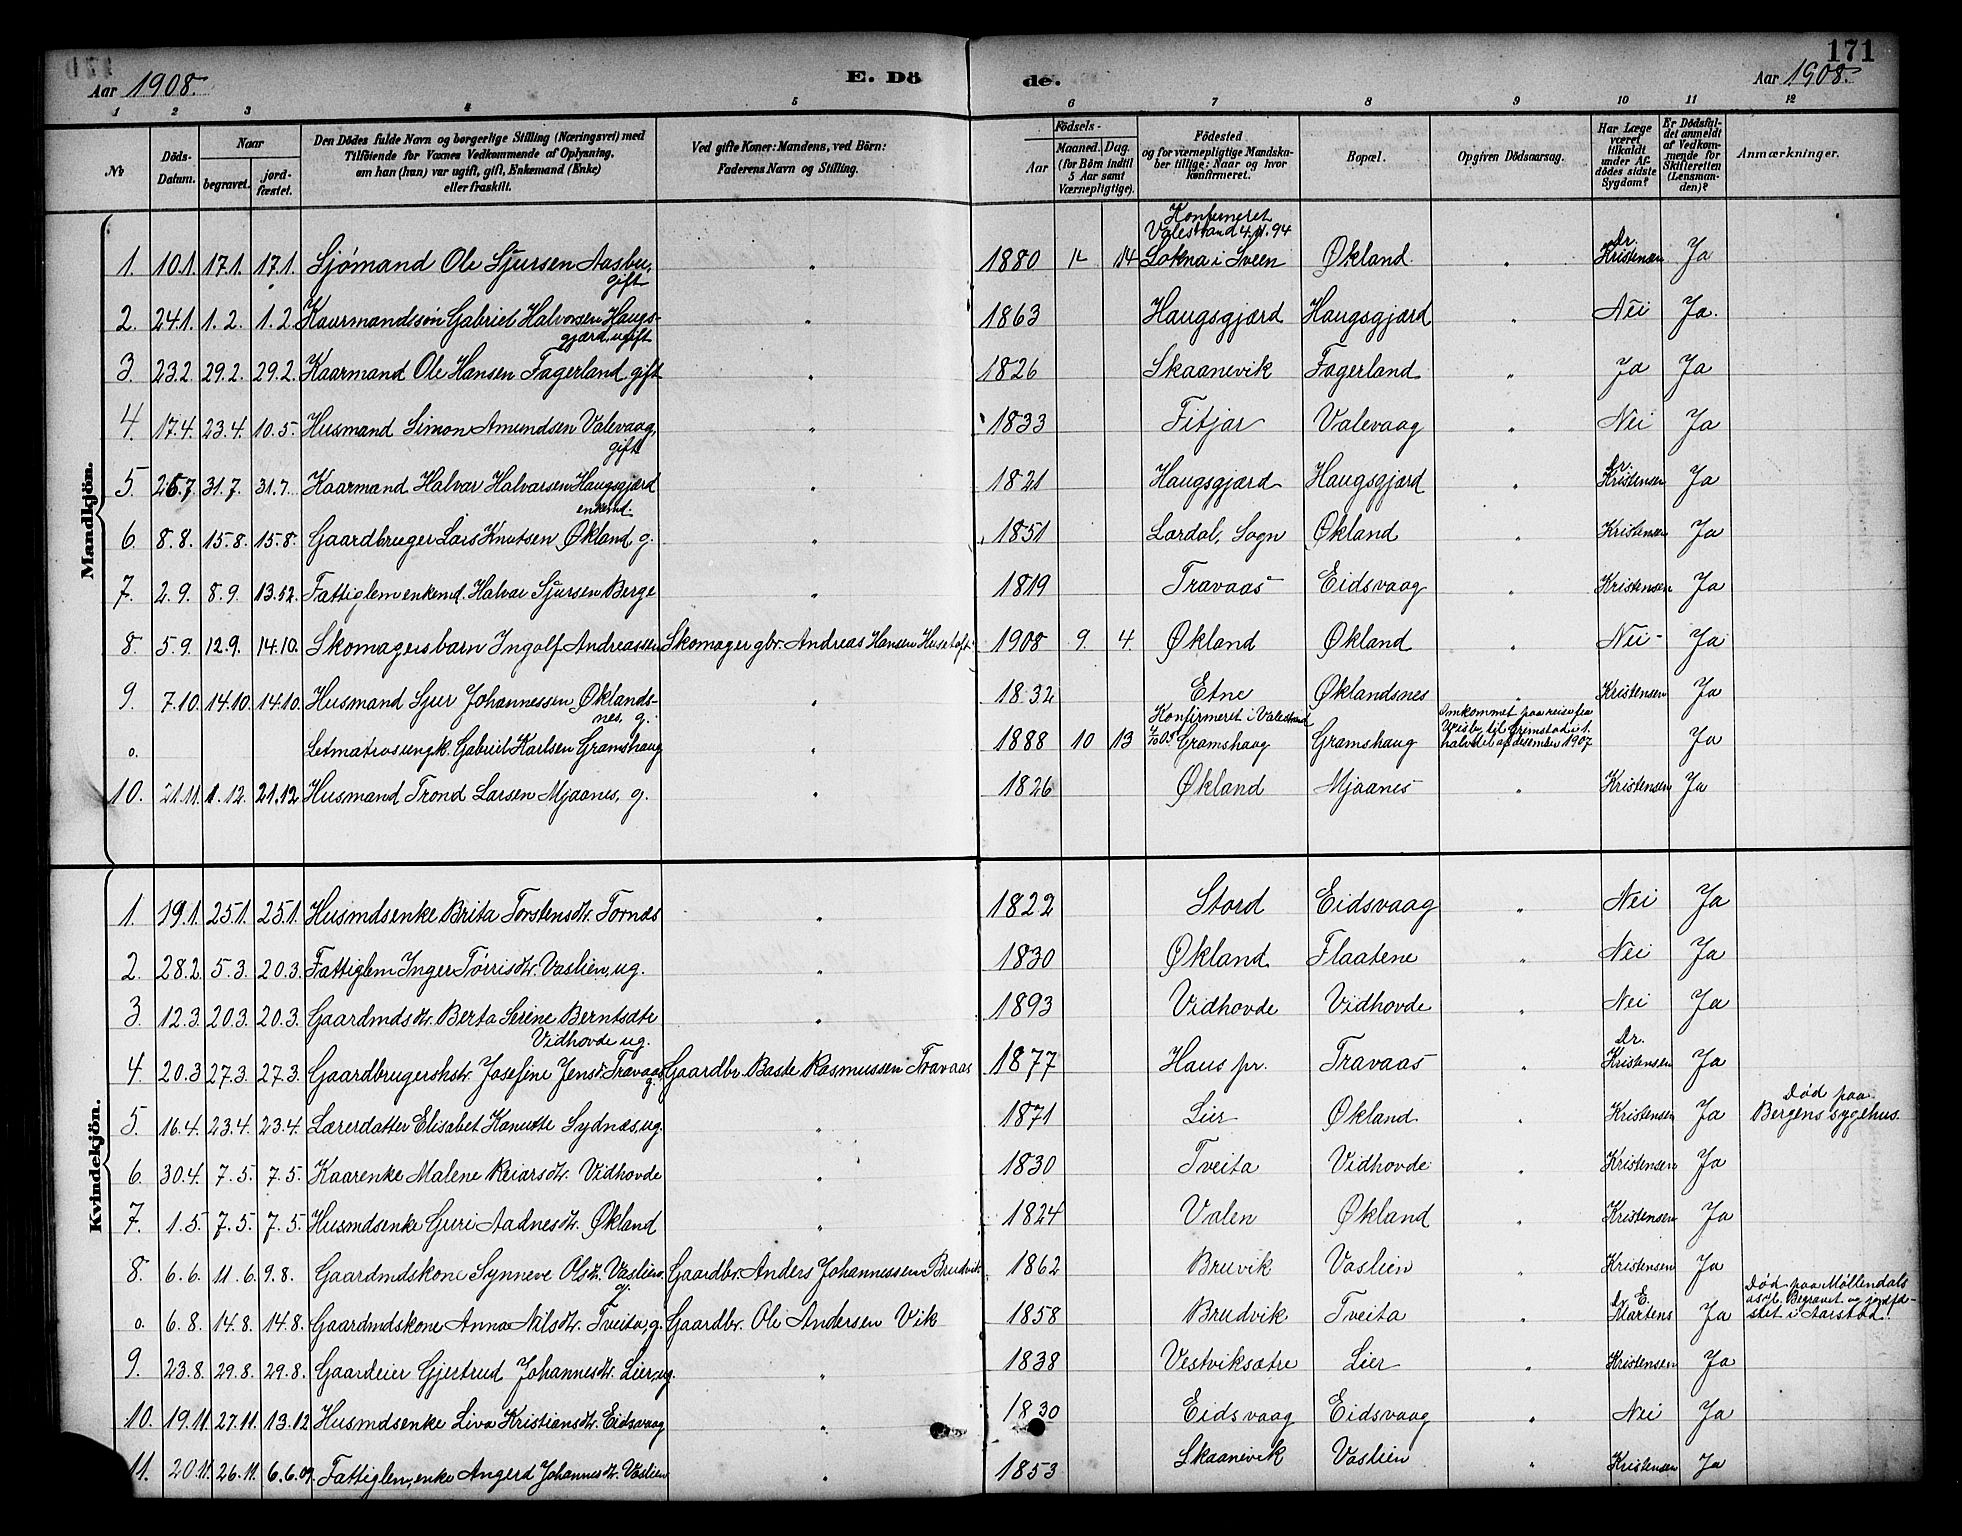 171
Aar 1908.
E. Dö
de.
Aar 1908.
1 2 3 4 5 6 7 8 9 10 11 12
No
Döds-Datum.
Naar
begravet.
jord-fæstet.
Den Dödes fulde Navn og borgerlige Stilling (Næringsvei) med
Tilföiende for Voxnes Vedkommende af Oplysning,
om han (hun) var ugift, gift, Enkemand (Enke)
eller fraskilt.
Ved gifte Koner: Mandens, ved Börn:
Faderens Navn og Stilling.
Födsels-
Aar
Maaned. Dag.
(for Börn indtil
5 Aar samt
Værnepligtige).
Födested
og for værnepligtige Mandska-
ber tillige: Naar og hvor
konfirmeret.
Bopæl.
Opgiven Dödsaarsag.
Har Læge
været
tilkaldt
under Af-
dödes sidste
Sygdom?
Er Dödsfal-
det anmeldt
af Vedkom-
mende for
Skifteretten
(Lensman-
den)?
Anmærkninger.
Mandkjön.
Konfirmeret
Valestrand 4.11.94
1. 10.1. 17.1. 17.1. Sjømand Ole Sjursen Aasbu, " 1880 12 14 Lokna i Sveen Økland " Dr. Kristensen Ja
gift
2. 24.1. 1.2. 1.2. Kaarmandssøn Gabriel Halvorsen Haugs- " 1863 Haugsgjærd Haugsgjærd " Nei Ja.
gjærd, ugift
3. 23.2. 29.2. 29.2. Kaarmand Ole Hansen Fagerland gift " 1826 Skaanevik Fagerland " Ja Ja
4. 17.4. 23.4. 10.5. Husmand Simon Amundsen Valevaag, " 1833 Fitjar Valevaag " Nei Ja
gift
5. 26.7. 31.7. 31.7. Kaarmand Halvar Halvarsen Haugsgjærd " 1821 Haugsgjærd Haugsgjærd " Dr. Kristensen Ja
enkemd.
6. 8.8. 15.8. 15.8. Gaardbruger Lars Knutsen Økland g. " 1851 Lærdal, Sogn Økland " Kristensen Ja
7. 2.9. 8.9. 13.12. Fattiglem enkemd. Halvar Sjursen Berge " 1819 Travaas Eidsvaag " Kristensen Ja
8. 5.9. 12.9. 14.10. Skomagersbarn Ingolf Andreassen Skomager gbr. Andreas Hansen Husetoft 1908 9. 4. Økland Økland " Nei Ja
9. 7.10. 14.10. 14.10. Husmand Sjur Johannessen Øklands- " 1832 Etne Øklandsnes " Kristensen Ja
nes, g.
Konfirmeret i Valestrand
o. Letmatros ungk. Gabriel Karlsen Gramshaug " 1888 10 13 Gramshaug Gramshaug Omkommet paa reise fra
Wisby til Grimstad i 1.
halvdel af desember 1907. Ja
10. 21.11. 1.12. 21.12 Husmand Trond Larsen Mjaanes, g. " 1826 Økland Mjaanes " Kristensen Ja
Kvindekjön.
1. 19.1. 25.1. 25.1. Husmdsenke Brita Torstensdtr. Tornæs " 1822 Stord Eidsvaag " Nei Ja
2. 28.2. 5.3. 20.3. Fattiglem Inger Tørrisdtr. Vaslien, ug. " 1830 Økland Flaatene " Nei Ja
3. 12.3. 20.3. 20.3. Gaardmdsdtr. Berta Serine Berntsdtr " 1893 Vidhovde Vidhovde " Nei Ja
Vidhovde ug.
4. 20.3 27.3. 27.3. Gaardbrugerskstr. Josefine Jensdr. Travaas g. Gaardbr. Baste Rasmussen Travaas 1877 Haus pr. Travaas Dr. Kristensen Ja
5. 16.4. 23.4. 23.4. Lærerdatter Elisabet Kanutte Sydnæs, ug. " 1871 Lier Økland " Kristensen Ja Død paa
Bergens sygehus.
6. 30.4. 7.5. 7.5. Kaarenke Malene Reiarsdtr. Vidhovde " 1830 Tveita Vidhovde " Kristensen Ja
7. 1.5. 7.5. 7.5. Husmdsenke Guri Aadnesdtr. Økland " 1824 Valen Økland " Kristensen Ja
8. 6.6. 11.6. 9.8. Gaardmdskone Synneve Olsdtr. Vaslien g. Gaardbr. Anders Johannessen Brudvik 1862 Bruvik Vaslien " Kristensen Ja
o. 6.8. 14.8. 14.8. Gaardmdskone Anna Nilsdtr. Tveita, g. Gaardbr. Ole Andersen Vik 1858 Brudvik Tveita " Dr. E. Martens Ja Død paa Möllendals
asyl. Begravet og jordfæ-
stet i Aarstad!
9. 23.8. 29.8. 29.8. Gaardeier Gjertrud Johannesdtr. Lier, ug. " 1838 Vestviksætre Lier " Kristensen Ja
10. 19.11. 27.11. 13.12 Husmdsenke Liva Kristiansdtr. Eidsvaag " 1830 Eidsvaag Eidsvaag " Nei Ja
11. 20.11. 26.11. 6.6.09. Fattiglem, enke Angerd Johannesdtr. Vaslien " 1853 Skaanevik Vaslien " Kristensen Ja